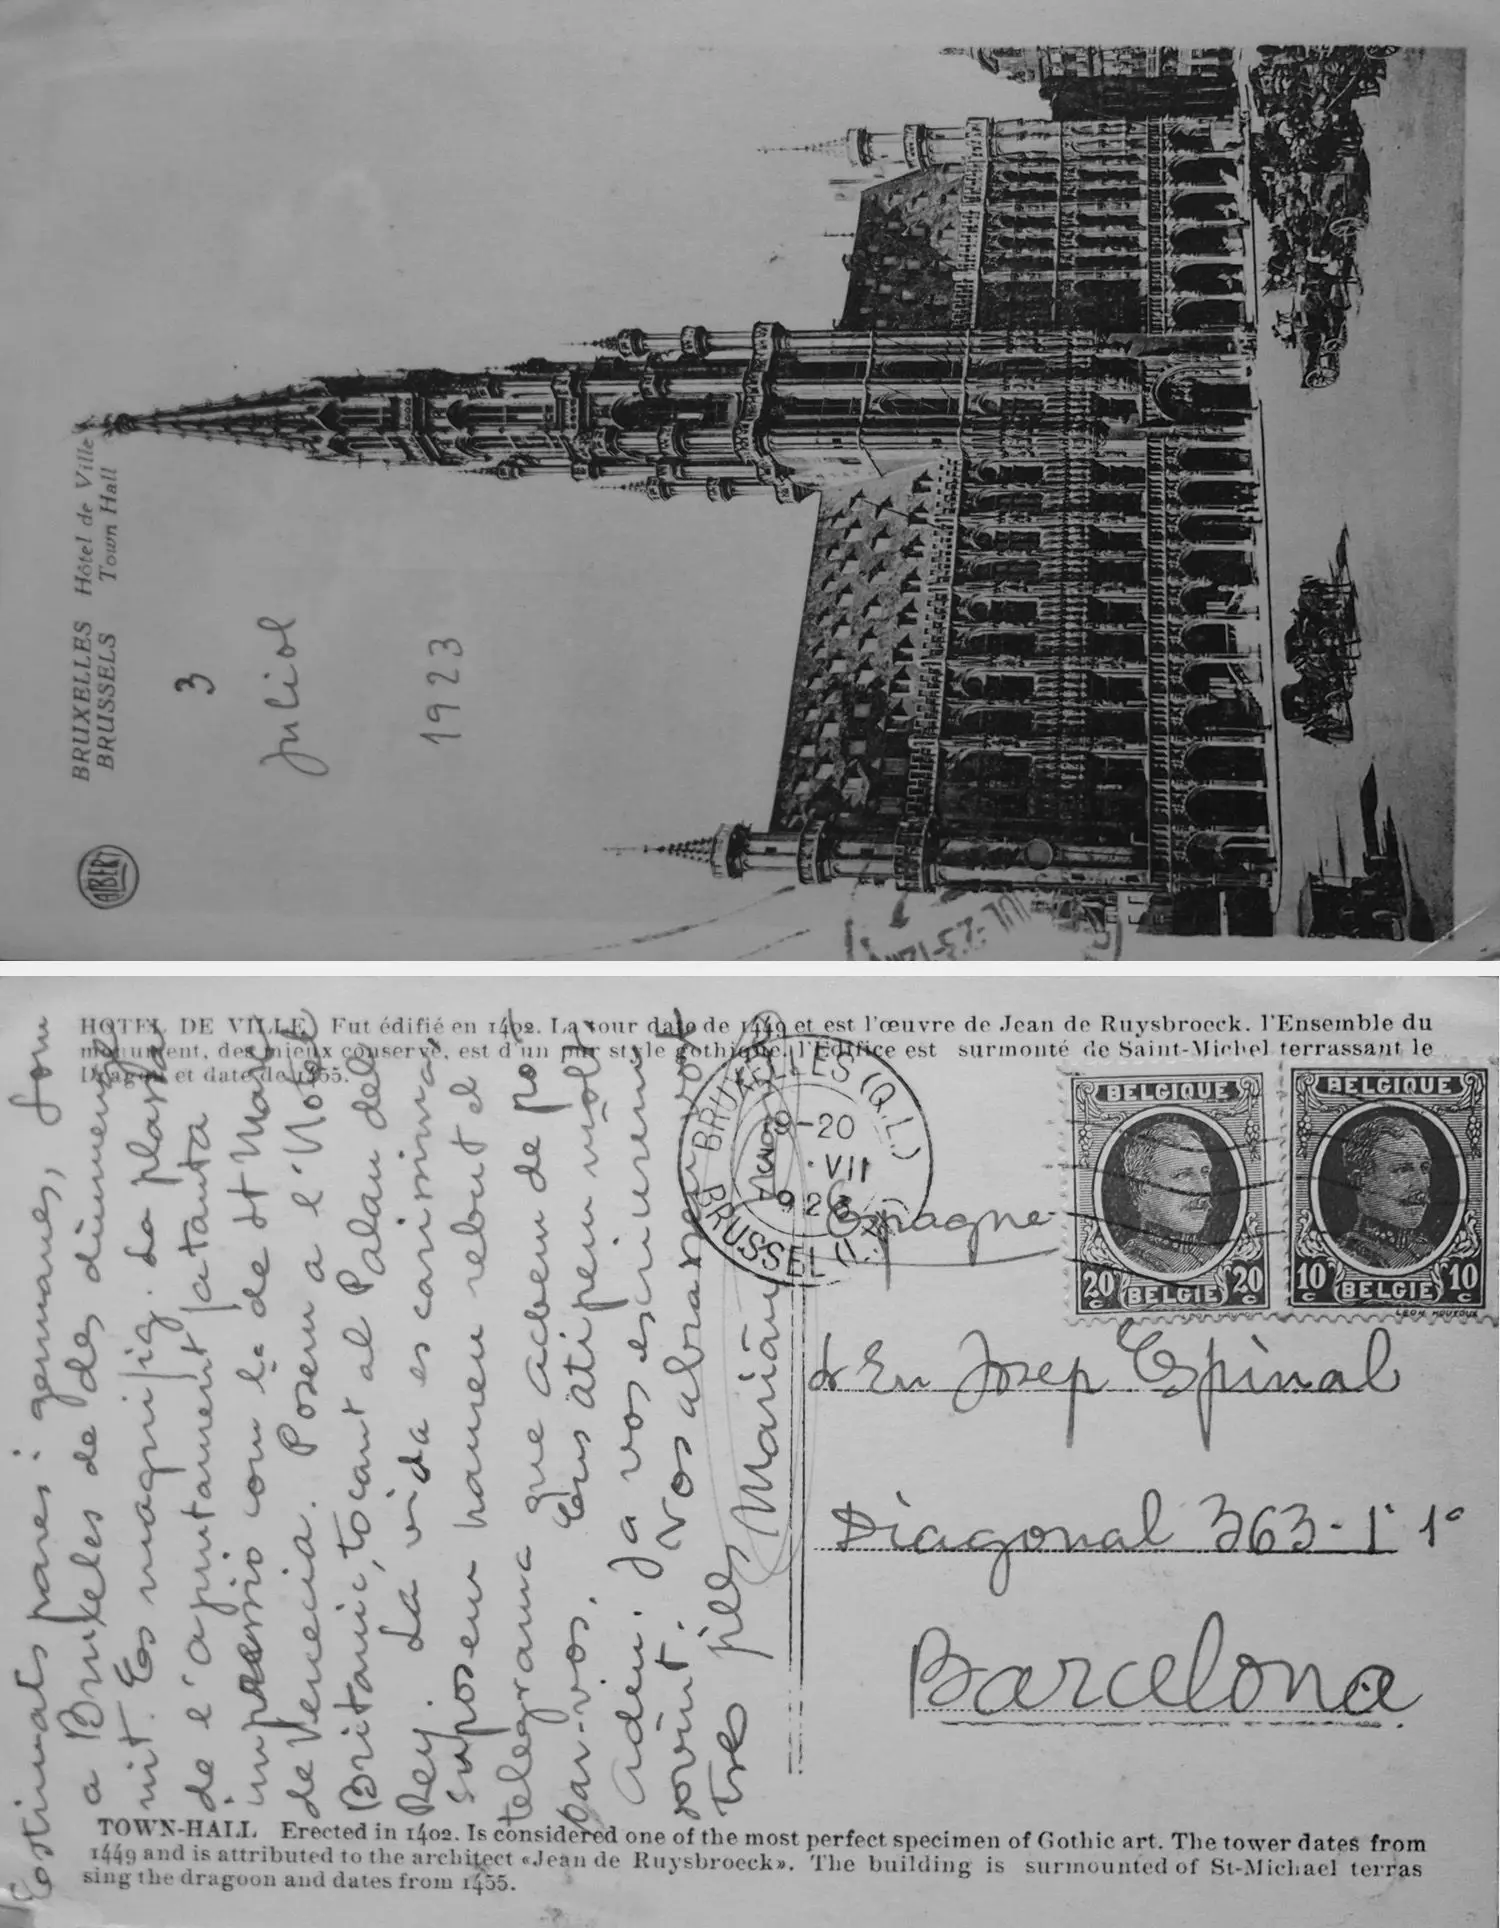 BRUXELLES Hôtel de Ville
BRUSSELS Town Hall
ALBERT
3
Juliol
1923
JUL -23-12
HOTEL DE VILLE Fut édifié en 1402. La tour date de 1449 et est l'œuvre de Jean de Ruysbroeck. l'Ensemble du
monument, des mieux conservé, est d'un pur style gothique. l'Edifice est surmonté de Saint-Michel terrassant le
Dragon et date de 1455.
Estimats pares i germanes, som
a Bruxeles de des diumenge
nit. Es magnífig. La plassa
de l'ajuntament fa tanta
impresio com la de St Marc
de Venecia. Posem a l'Hotel
Britanic, tocant al Palau del
Rey. La vida es carissima
Suposem haureu rebut el
telegrama que acabem de po
sar-vos. Ens atipem molt
Adeu. Ja vos escriurem
sovint. Vos abrassem
tres fills Mariano
BRUXELLES (Q.L.)
8-20
VII
1923
BRUSSEL (L.
Espagne
BELGIQUE
20 c 20 c
BELGIE
BELGIQUE
10 c 10 c
BELGIE
LEON HOUYOUX
d En Josep Espinal
Diagonal 363-1r 1a
Barcelona
TOWN-HALL Erected in 1402. Is considered one of the most perfect specimen of Gothic art. The tower dates from
1449 and is attributed to the architect «Jean de Ruysbroeck». The building is surmounted of St-Michael terras
sing the dragoon and dates from 1455.